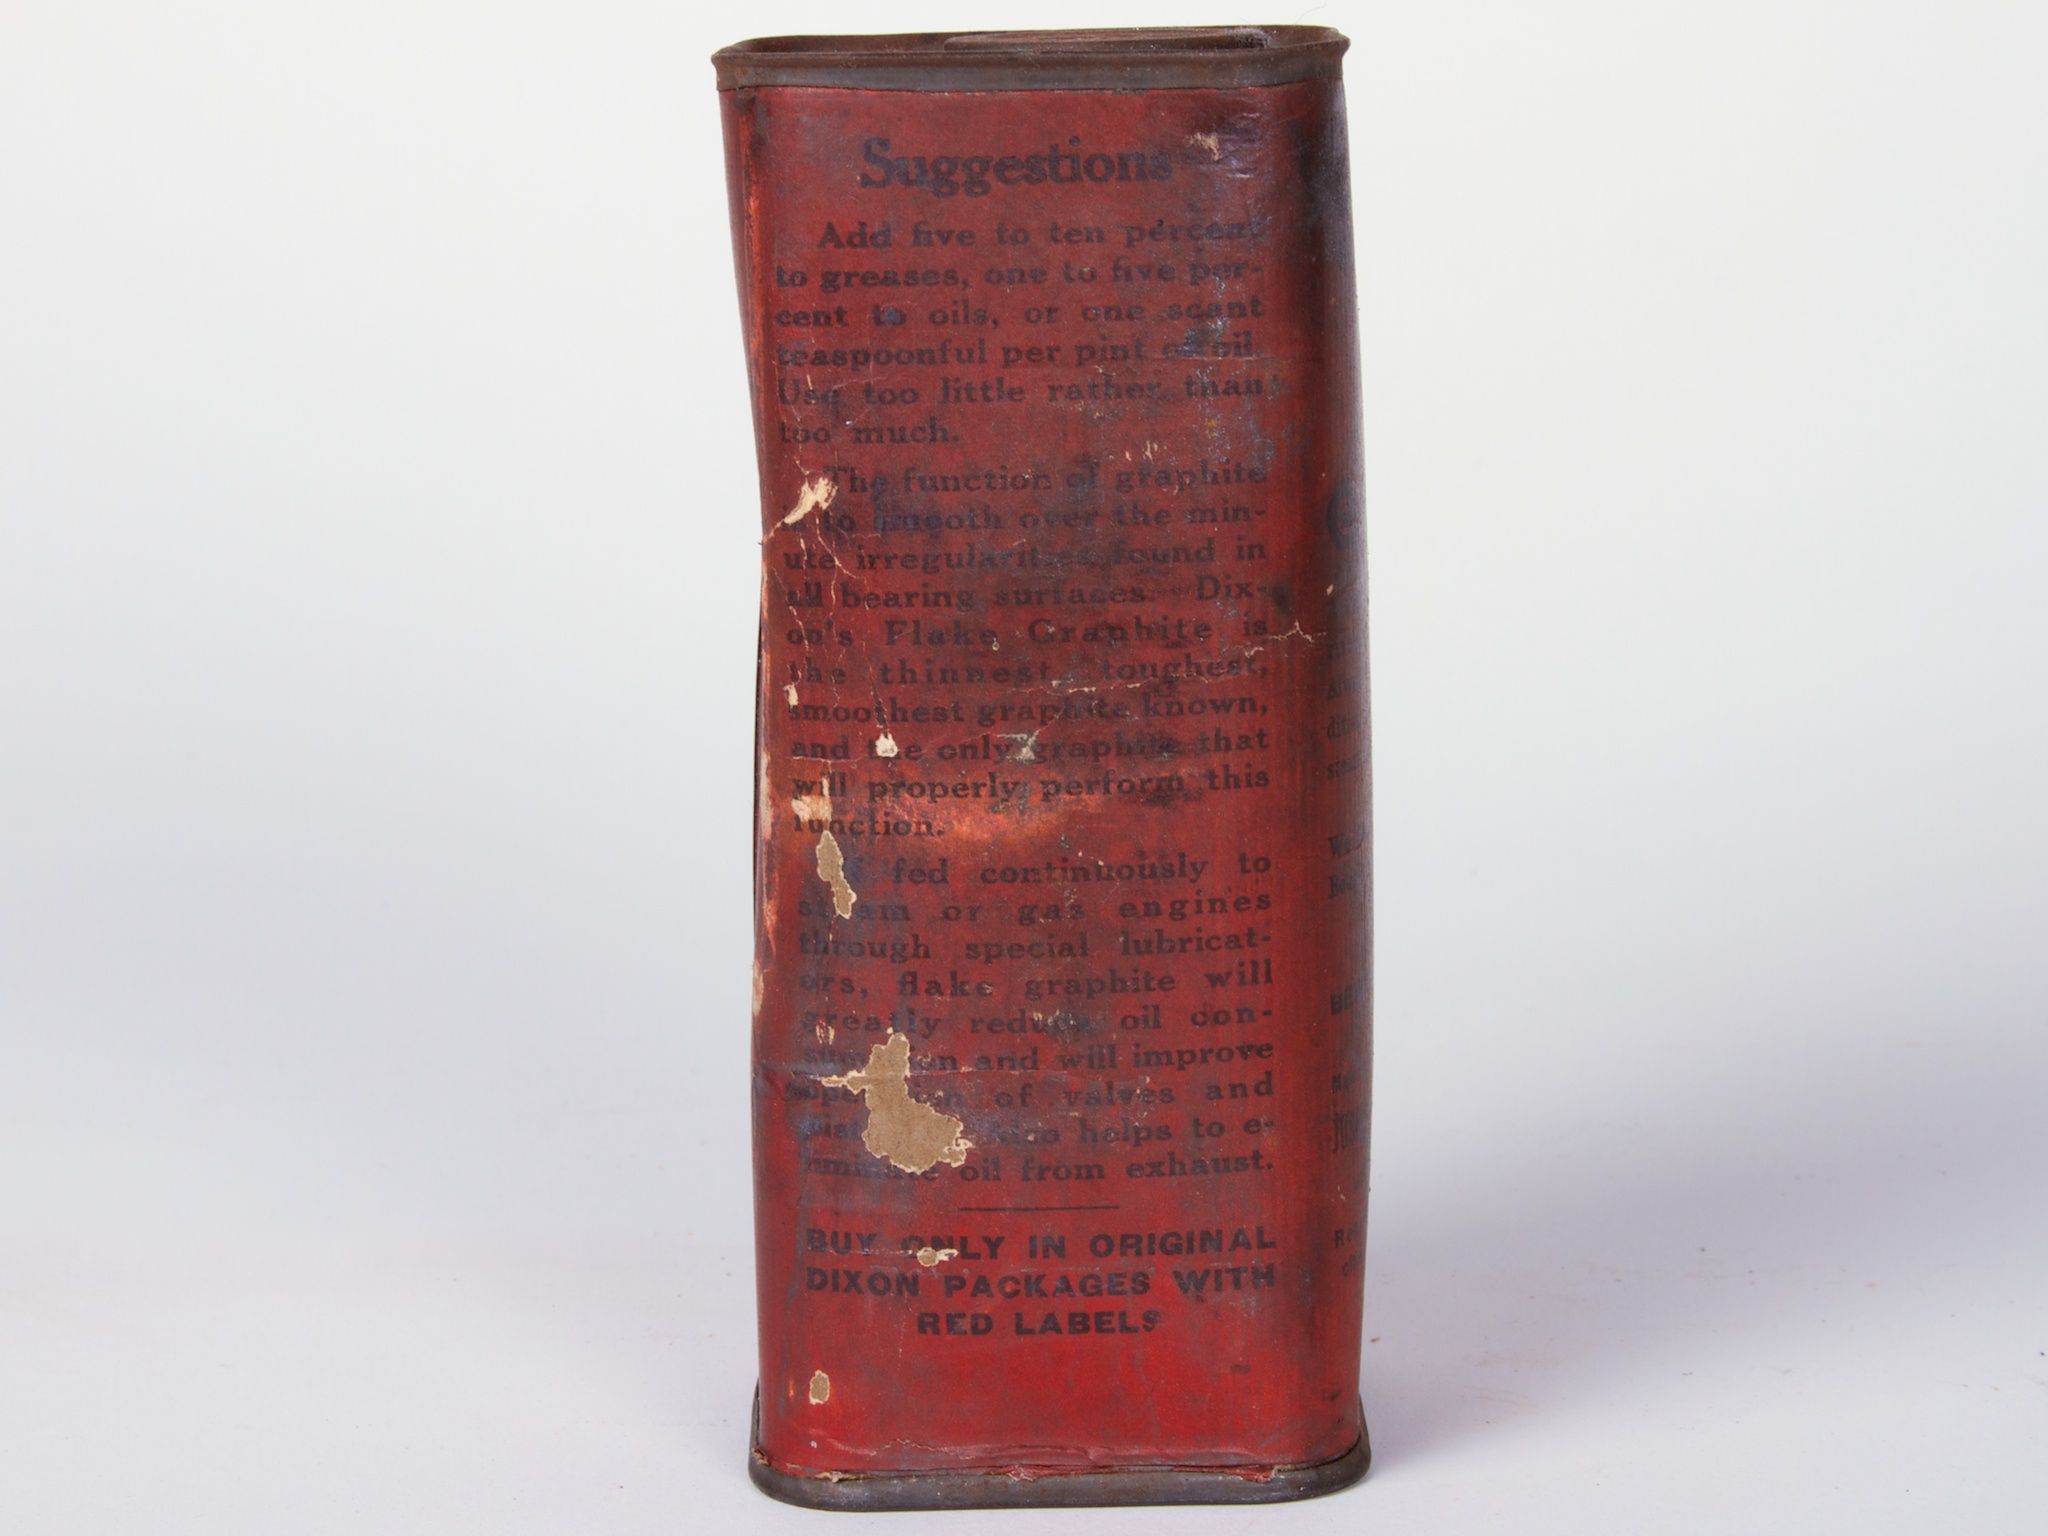 Suggestions
Add five to ten percent
to greases, one to five per-
cent to oils, or one scant
teaspoonful per pint of oil.
Use too little rather than
too much.
The function of graphite
is to smooth over the min-
ute irregularities found in
all bearing surfaces. Dix-
on's Flake Graphite is
the thinnest, toughest,
smoothest graphite known,
and the only graphite that
will properly perform this
function.
If fed continuously to
steam or gas engines
through special lubricat-
ors, flake graphite will
greatly reduce oil con-
sumption and will improve
operation of valves and
Also helps to e-
liminate oil from exhaust.
BUY ONLY IN ORIGINAL
DIXON PACKAGES WITH
RED LABELS